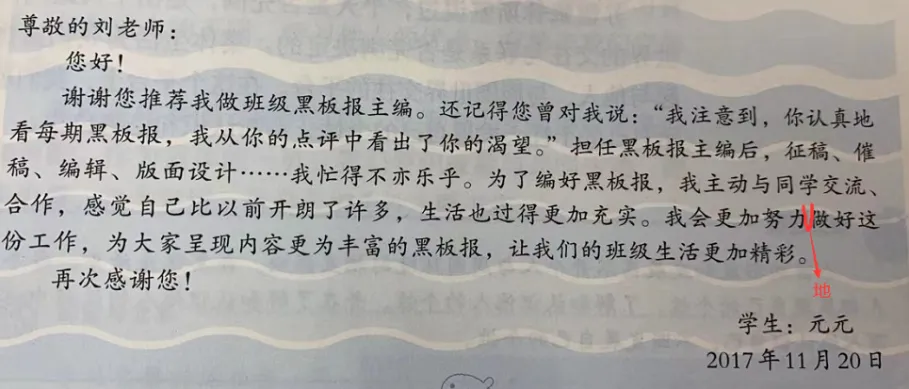 尊敬的刘老师：
您好！
谢谢您推荐我做班级黑板报主编。还记得您曾对我说：“我注意到，你认真地
看每期黑板报，我从你的点评中看出了你的渴望。”担任黑板报主编后，征稿、催
稿、编辑、版面设计……我忙得不亦乐乎。为了编好黑板报，我主动与同学交流、
合作，感觉自己比以前开朗了许多，生活也过得更加充实。我会更加努力做好这
份工作，为大家呈现内容更为丰富的黑板报，让我们的班级生活更加精彩。
地
再次感谢您！
学生：元元
2017年11月20日